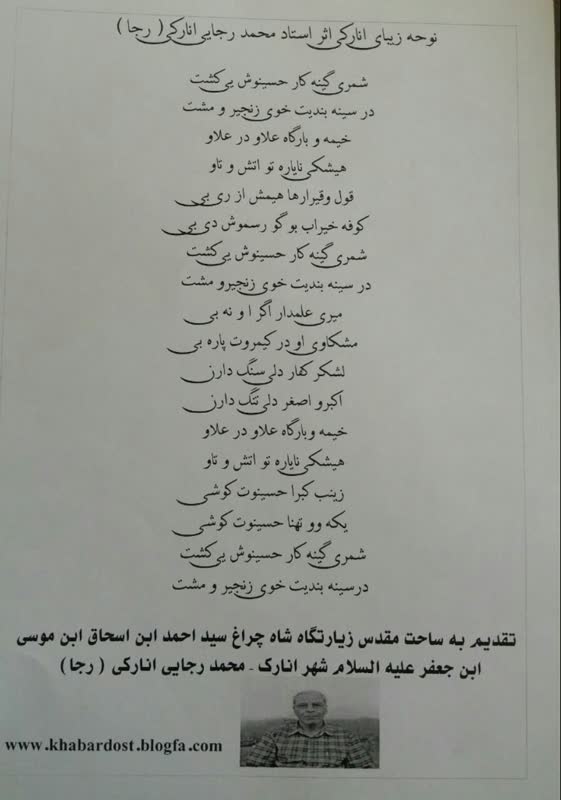 نوحه زیبای انارکی اثر استاد محمد رجایی انارکی( رجا )
شمری گینه کار حسینوش یی کشت
در سینه بندیت خوی زنجیر و مشت
خیمه و بارگاه علاو در علاو
هیشکی نایاره تو اتش و تاو
قول وقیرارها هیمش از ری بی
کوفه خیراب بو گو رسموش دی بی
شمری گینه کار حسینوش یی کشت
در سینه بندیت خوی زنجیرو مشت
میری علمدار اگر ا و نه بی
مشکاوی او در کیمروت پاره بی
لشکر کفار دلی سنگ دارن
اکبرو اصغر دلی تنگ دارن
خیمه وبارگاه علاو در علاو
هیشکی نایاره تو اتش و تاو
زینب کبرا حسینوت کوشی
یکه وو تهنا حسینوت کوشی
شمری گینه کار حسینوش یی کشت
درسینه بندیت خوی زنجیر و مشت
تقدیم به ساحت مقدس زیارتگاه شاه چراغ سید احمد ابن اسحاق ابن موسی
ابن جعفر علیه السلام شهر انارک - محمد رجایی انارکی ( رجا )
www.khabardost.blogfa.com